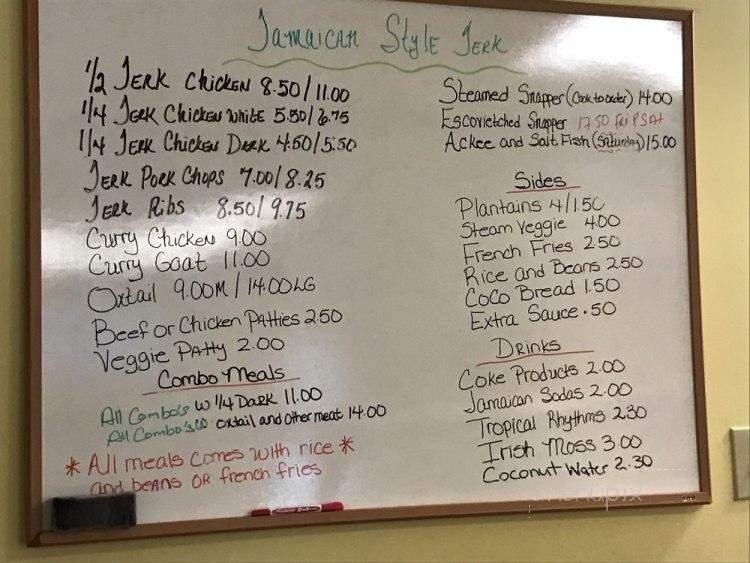 Jamaican Style Jerk
1/2 Jerk Chicken 8.50/11.00
1/4 Jerk Chicken White 5.50/6.75
1/4 Jerk Chicken Dark 4.50/5.50
Jerk Pork Chops 7.00/8.25
Jerk Ribs 8.50/9.75
Curry Chicken 9.00
Curry Goat 11.00
Oxtail 9.00M/14.00LG
Beef or Chicken Patties 2.50
Veggie Patty 2.00
Combo Meals
All Combo's w 1/4 Dark 11.00
All Combo's w oxtail and other meat 14.00
* All meals comes with rice *
and beans or french fries
Steamed Snapper (Cook to order) 14.00
Escovietched Snapper 17.50 Fri & SAt
Ackee and Salt Fish (Saturday) 15.00
Sides
Plantains 4/1.50
Steam Veggie 4.00
French Fries 2.50
Rice and Beans 2.50
CoCo Bread 1.50
Extra Sauce .50
Drinks
Coke Products 2.00
Jamaican Sodas 2.00
Tropical Rhythms 2.30
Irish Moss 3.00
Coconut Water 2.30